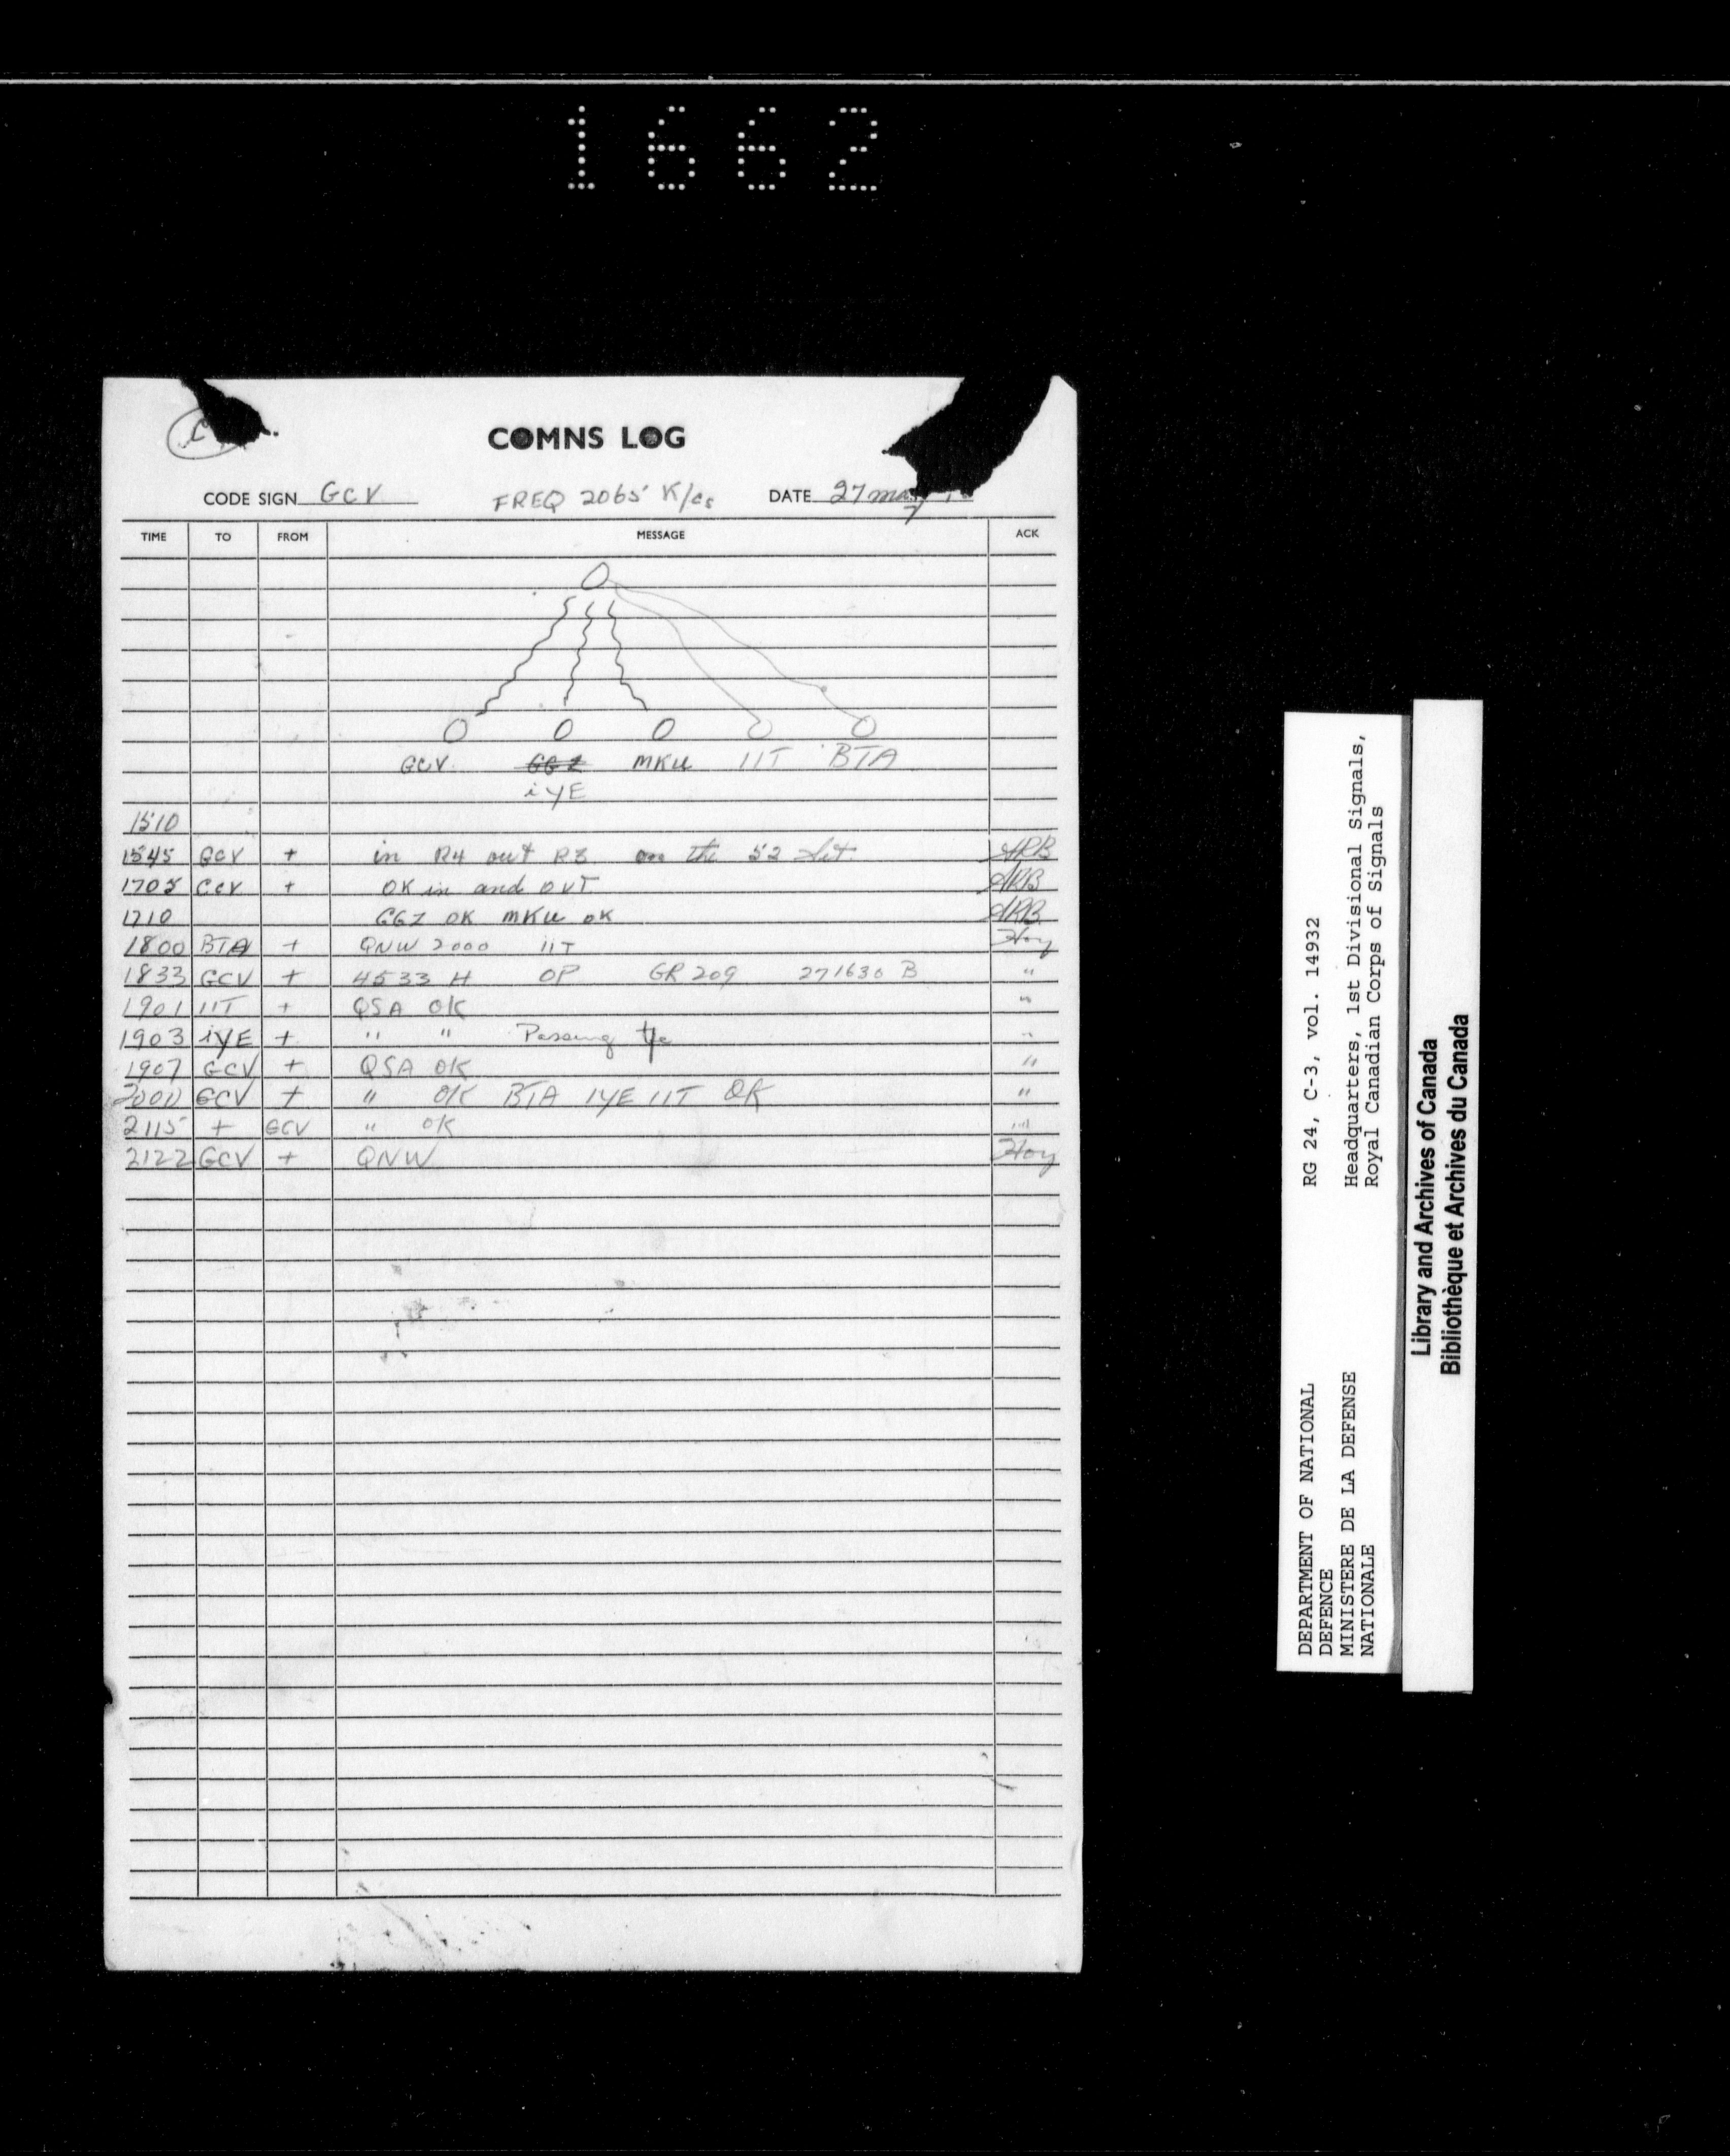 1662
COMNS LOG
CODE SIGN GCV FREQ 2065 K/cs DATE 27 may
TIME TO FROM MESSAGE ACK
GCV GGZ MKU IIT BTA
iYE
1510
1545 GCV + in R4 out R3 on the 52 set ARB
1705 GCV + OK in and OUT ARB
1710 GGZ OK MKU OK ARB
1800 BTA + QNW 2000 IIT Hoy
1833 GCV + 4533 H OP GR 209 271630 B "
1901 IIT + QSA OK "
1903 iYE + " " Passing "
1907 GCV + QSA OK "
2000 GCV + " OK BTA IYE IIT OK "
2115 + GCV " OK "
2122 GCV + QNW Hoy
RG 24, C-3, vol. 14932
Headquarters, 1st Divisional Signals,
Royal Canadian Corps of Signals
DEPARTMENT OF NATIONAL
DEFENCE
MINISTERE DE LA DEFENSE
NATIONALE
Library and Archives of Canada
Bibliothèque et Archives du Canada